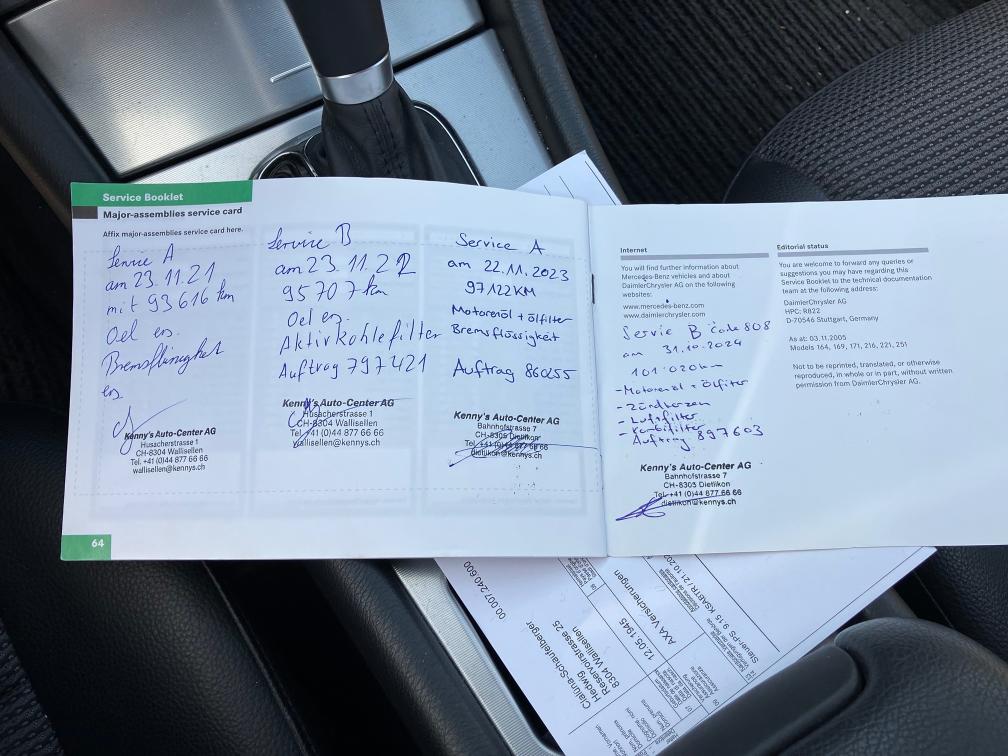 Service Booklet
Major-assemblies service card
Affix major-assemblies service card here.
Service A
am 23.11.21
mit 93616 km
Oel er.
Bremsflüssigkeit
er.
Kenny's Auto-Center AG
Husacherstrasse 1
CH-8304 Wallisellen
Tel. +41 (0)44 877 66 66
wallisellen@kennys.ch
64
Service B
am 23.11.22
95707 km
Oel er.
Aktivkohlefilter
Auftrag 797421
Kenny's Auto-Center AG
Husacherstrasse 1
CH-8304 Wallisellen
Tel. +41 (0)44 877 66 66
wallisellen@kennys.ch
Service A
am 22.11.2023
97122KM
Motorenöl + ölfilter
Bremsflössigkeit
Auftrag 860255
Kenny's Auto-Center AG
Bahnhofstrasse 7
CH-8305 Dietlikon
Tel. +41 (0)44 877 66 66
dietlikon@kennys.ch
Internet
You will find further information about
Mercedes-Benz vehicles and about
DaimlerChrysler AG on the following
websites:
www.mercedes-benz.com
www.daimlerchrysler.com
Servie B Code 808
am 31.10.2024
101'020km
- Motorenöl + Ölfilter
- Zündkerzen
- Luftfilter
- Kombifilter
Auftrag 897603
Kenny's Auto-Center AG
Bahnhofstrasse 7
CH-8305 Dietlikon
Tel. +41 (0)44 877 66 66
dietlikon@kennys.ch
Editorial status
You are welcome to forward any queries or
suggestions you may have regarding this
Service Booklet to the technical documentation
team at the following address:
DaimlerChrysler AG
HPC: R822
D-70546 Stuttgart, Germany
As at: 03.11.2005
Models 164, 169, 171, 216, 221, 251
Not to be reprinted, translated, or otherwise
reproduced, in whole or in part, without written
permission from DaimlerChrysler AG.
00.007.240.600
Hedwig
Reservoirstrasse 25
8304 Wallisellen
12.05.1945
AXA Versicherungen
Steuer-PS 9.15